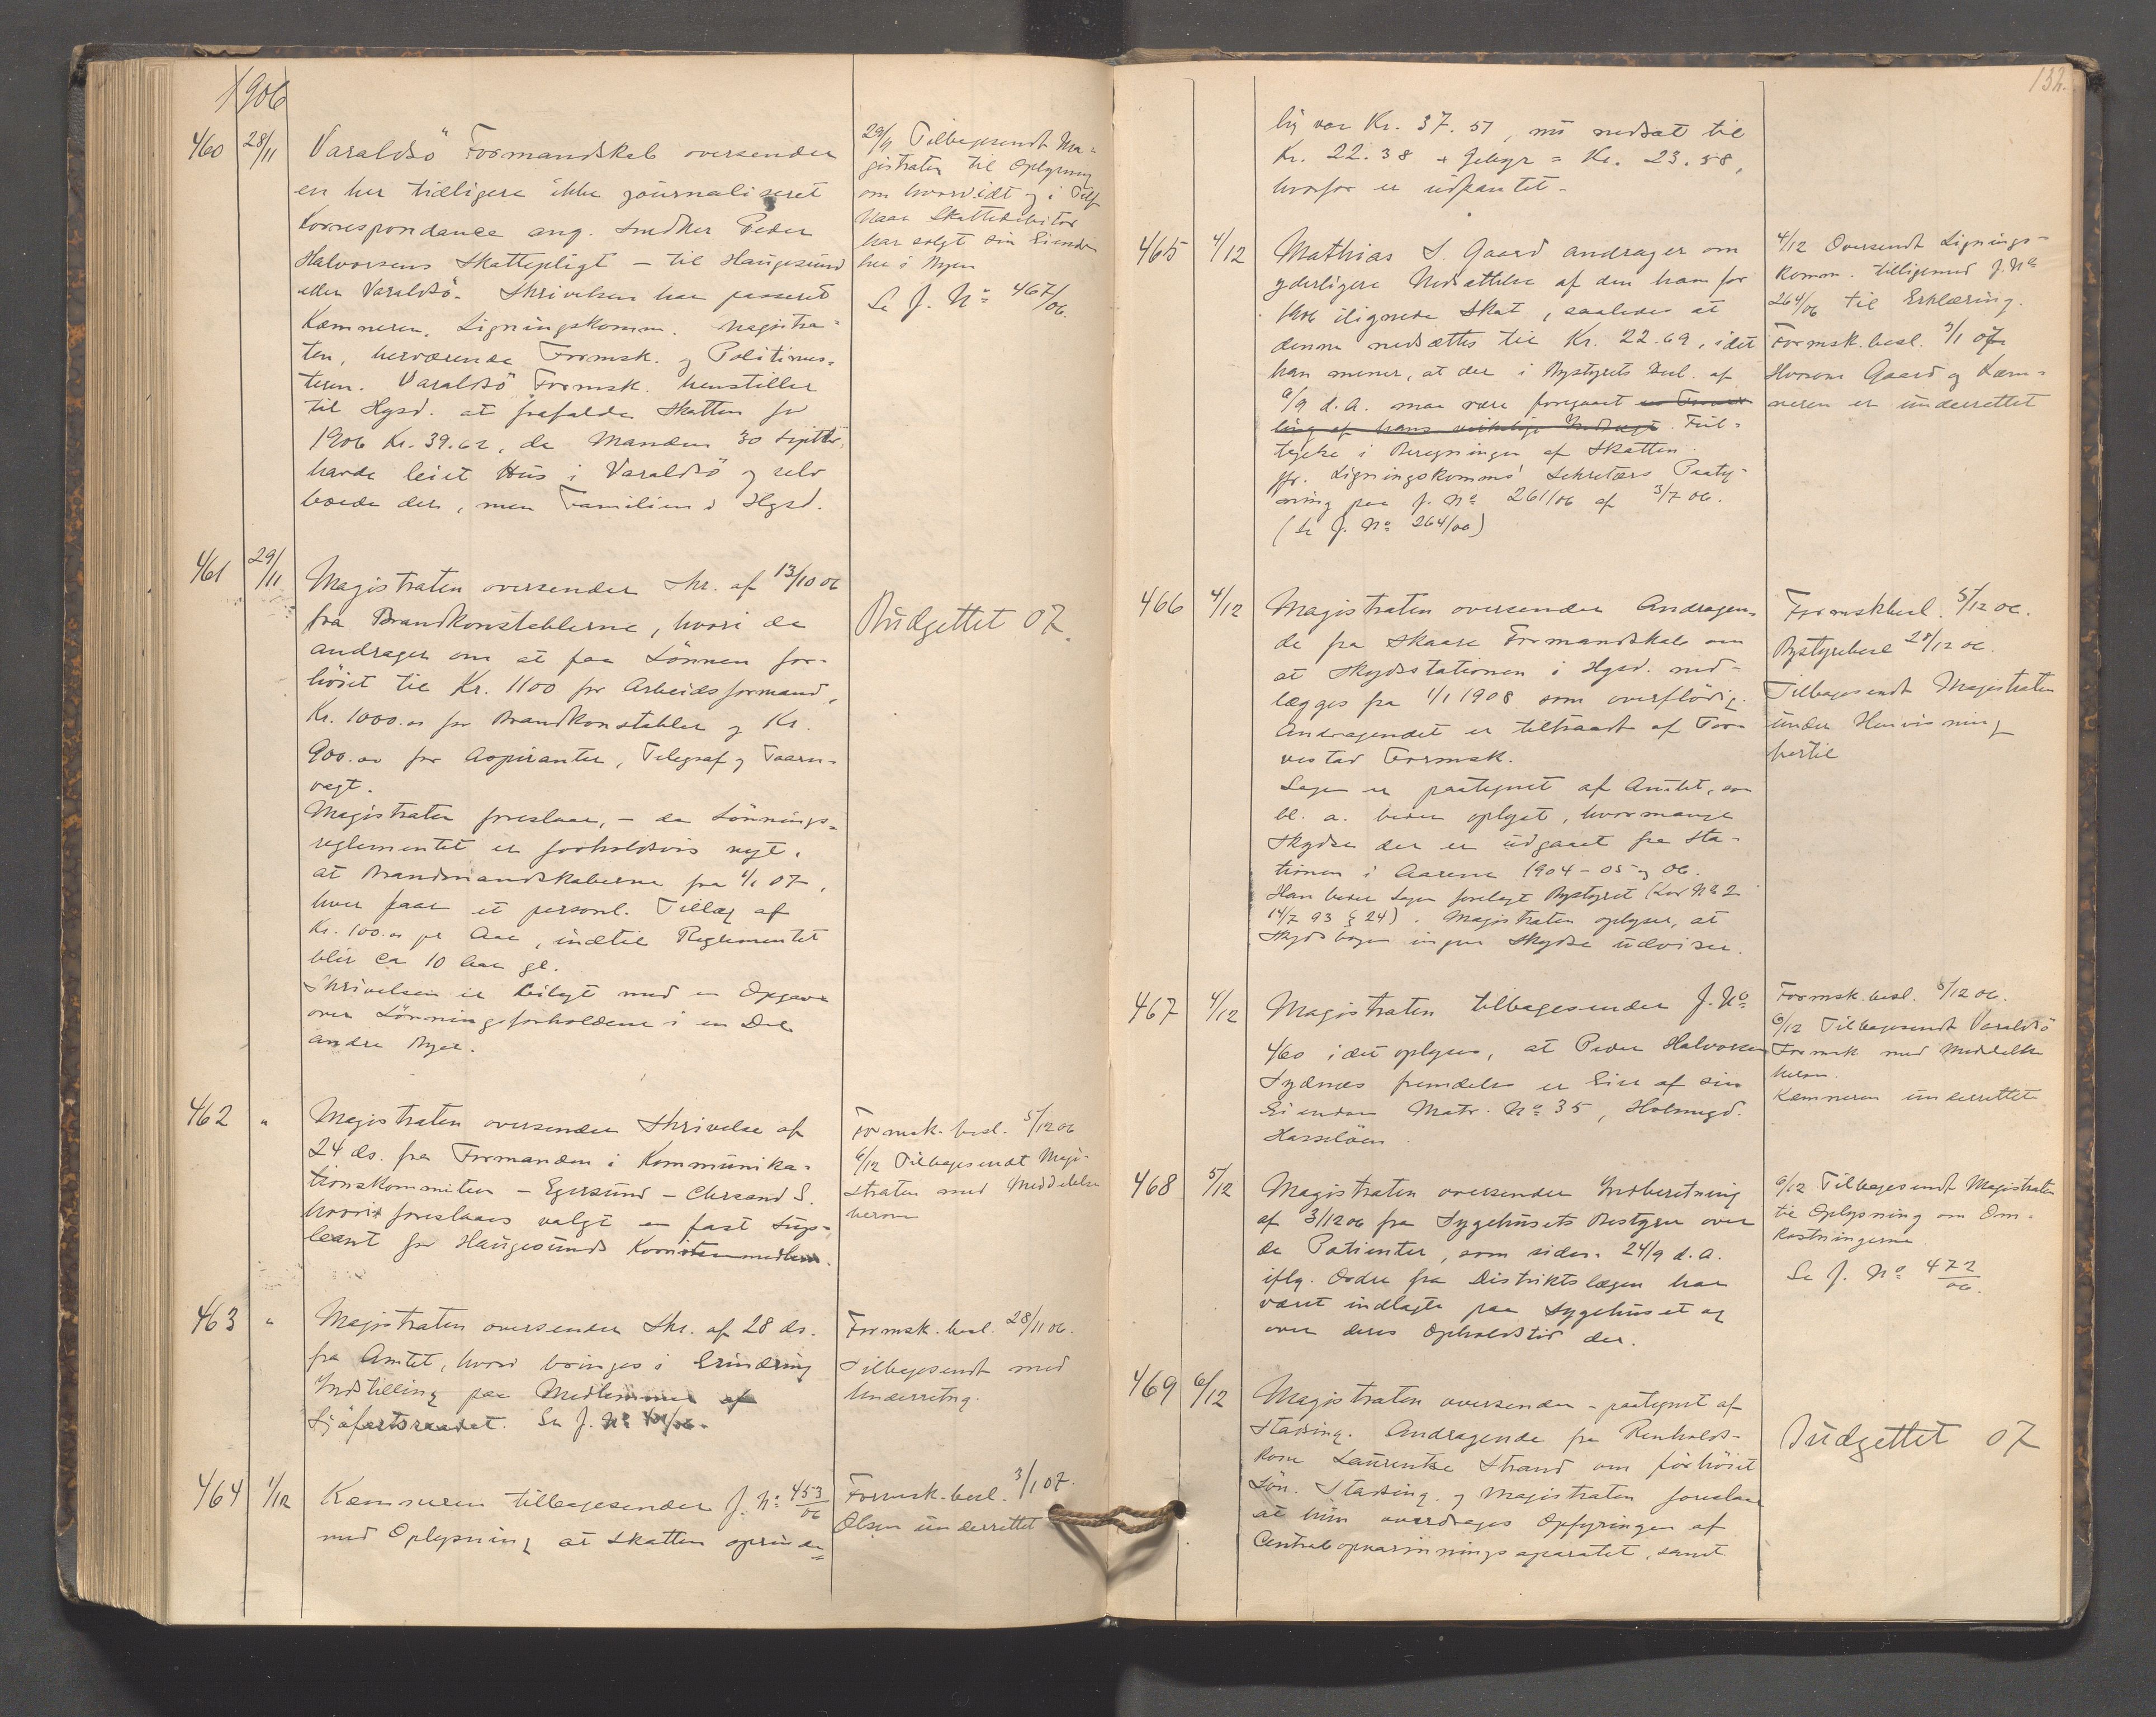 1906
460 28/11 Varaldsö Formandskab oversender
en her tidligere ikke journaliseret
Korrespondance ang. Snedker Peder
Halvorsens Skattepligt – til Haugesund
eller Varaldsö. Skrivelsen har passeret
Kæmneren, Ligningskomm. Magistra-
ten, herværende Formsk. og Politimes-
teren. Varaldsö Formsk. henstiller
til Hgsd. at frafalde Skatten for
1906 Kr. 39.62, da Manden 30 Septbr.
havde leiet Hus i Varaldsö og selv
boede der, men Familien i Hgsd.
29/11 Tilbagesendt Ma-
gistraten til Oplysning
om hvorvidt og i Tilf
naar Skattedebitor
har solgt sin Eiendom
her i Byen
Se J. No 467/06.
461 29/11 Magistraten oversender Skr. af 13/10 06
fra Brandkonstablerne, hvori de
andrager om at faa Lönnen for-
höiet til Kr. 1100 for Arbeidsformand,
Kr. 1000.00 for Brandkonstabler og Kr.
900.00 for Aspiranter, Telegraf og Taarn-
vagt.
Magistraten foreslaar, – da Lönnings-
reglementet er forholdsvis nyt,
at Brandmandskaberne fra 1/1 07,
hver faar et personl. Tillæg af
Kr. 100.00 pr Aar, indtil Reglementet
blir ca 10 Aar gl.
Skrivelsen er bilagt med en Opgave
over Lönningsforholdene i en Del
andre Byer.
Budgettet 07.
462 " Magistraten oversender Skrivelse af
24 ds. fra Formanden i Kommunika-
tionskommiteen – Egersund – Chrsand S.
hvori foreslaaes valgt en fast Sup-
leant for Haugesunds Komitemedlem.
Formsk. besl. 5/12 06
6/12 Tilbagesendt Magi-
straten med Meddelelse
herom
463 " Magistraten oversender Skr. af 28 ds.
fra Amtet, hvori bringes i Erindring
Indstilling paa Medlemmer af
Sjöfartsraadet. Se J. No
Formsk. besl. 28/11 06.
Tilbagesendt med
Underretng.
464 1/12 Kæmneren tilbagesender J. No 453/06
med Oplysning at Skatten oprinde=
Formsk. besl. 3/1 07.
Olsen underrettet
132.
lig var Kr. 37.51, nu nedsat til
Kr. 22.38 + Gebyr = Kr. 23.58,
hvorfor er udpantet.
465 4/12 Mathias S. Gaard andrager om
yderligere Nedsættelse af den ham for
1906 ilignede Skat, saaledes at
denne nedsættes til Kr. 22.69, idet
han mener, at der i Bystyrets Besl. af
6/9 d.A. maa være foregaaet en
ling af hans virkelige Indtægt. Feil-
tagelse i Beregningen af Skatten.
jfr. Ligningskomms Sekretærs Paateg-
ning paa J. No 261/06 af 3/7 06.
(Se J. No 264/06)
4/12 Oversendt Lignings-
komm. tilligemed J. No
264/06 til Erklæring.
Formsk. besl. 3/1 07
Hvorom Gaard og Kæm-
neren er underrettet
466 4/12 Magistraten oversender Andragen-
de fra Skaare Formandskab om
at Skydsstationen i Hgsd. ned-
lægges fra 1/1 1908 som overflödig.
Andragendet er tiltraadt af Tor-
vestad Formsk.
Sagen er paategnet af Amtet, som
bl. a. beder oplyst, hvormange
Skydse der er udgaaet fra Sta-
tionen i Aarene 1904 – 05 og 06.
Han beder Sagen forelagt Bystyret (Lov No 2
14/7 93 § 24). Magistraten oplyser, at
Skydsbogen ingen Skydse udviser.
Formsk besl. 5/12 06.
Bystyrebesl 28/12 06.
Tilbagesendt Magistraten
under Henvisning
hertil
467 4/12 Magistraten tilbagesender J. No
460 idet oplyses, at Peder Halvorsen
Sydnæs fremdeles er Eier af sin
Eiendom Matr. No 35, Holmegd.
Hasselöen.
Formsk. besl. 5/12 06.
6/12 Tilbagesendt Varaldsö
Formsk med Meddelelse
herom.
Kæmneren underrettet
468 5/12 Magistraten oversender Indberetning
af 3/12 06 fra Sygehusets Bestyrer over
de Patienter, som siden 24/9 d.A.
iflg. Ordre fra Distriktslægen har
været indlagte paa Sygehuset og
over deres Opholdstid der.
6/12 Tilbagesendt Magistraten
til Oplysning om Om-
kostningerne
Se J. No 472/06.
469 6/12 Magistraten oversender – paategnet af
Stadsing. Andragende fra Renholds-
kone Laurentse Strand om forhöiet
Lön. Stadsing. og Magistraten foreslaar
at hun overdrages Opfyringen af
Centralopvarmningsaparatet, samt
Budgettet 07